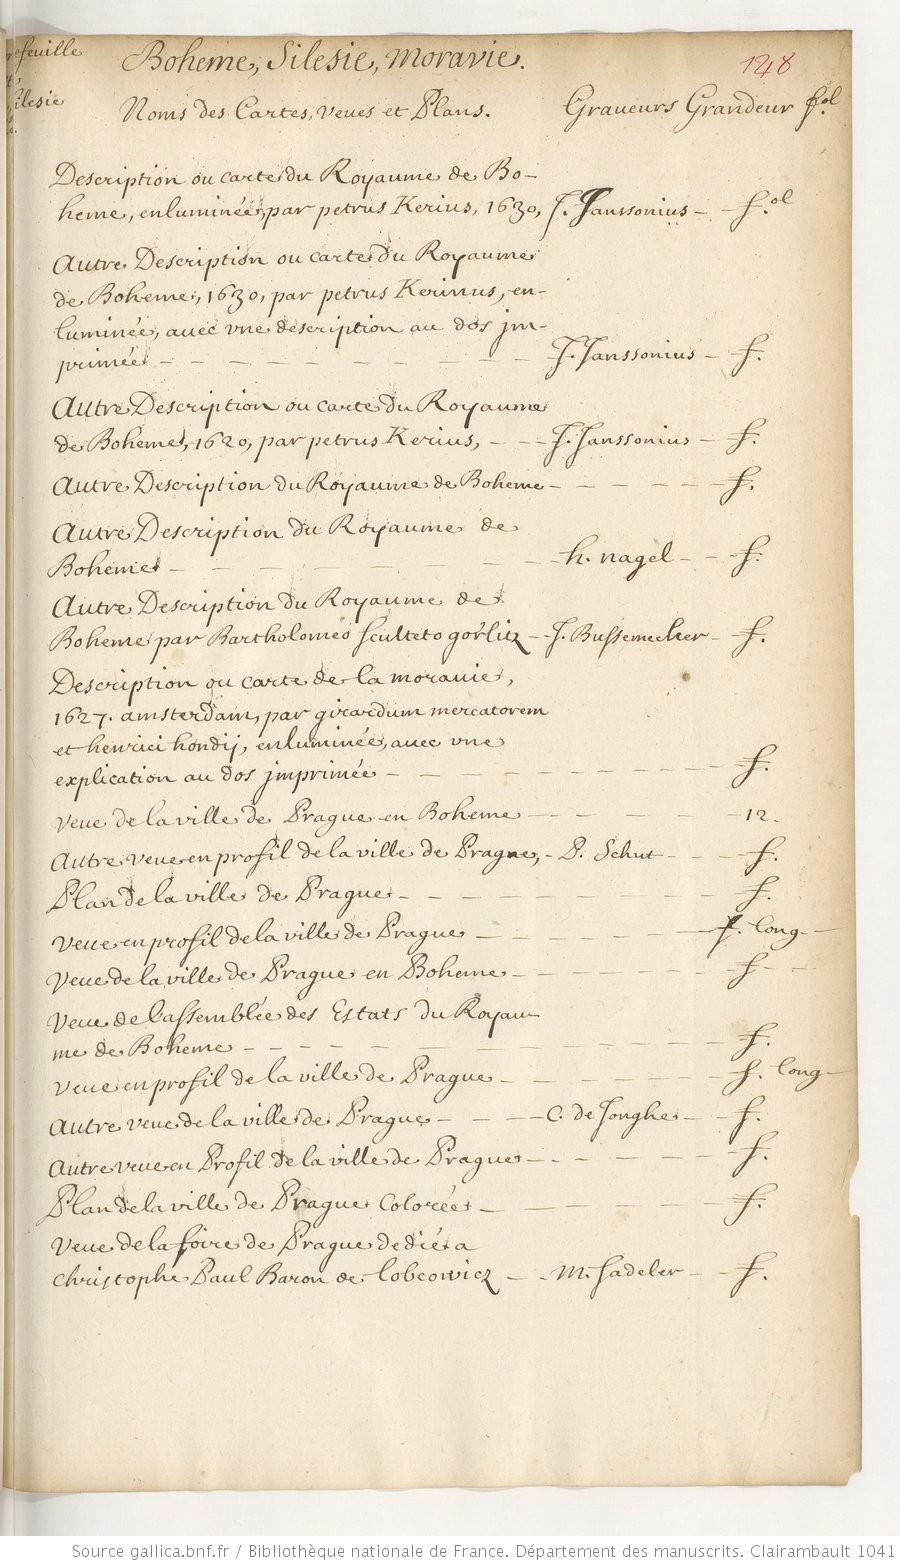 efeuille
Boheme, Silesie, Moravie.
148
ilesie
Noms des Cartes, veues et Plans. Graueurs Grandeur fol.
Description ou carte du Royaume de Bo-
heme, enluminée, par petrus Kerius, 1630, J. Janssonius - f.ol
Autre Description ou carte du Royaume
de Boheme, 1630, par petrus Kerinus, en-
luminée, auec vne description au dos jm-
primée - - - - - - - - J. Janssonius - f.
Autre Description ou carte du Royaume
de Boheme, 1620, par petrus Kerius, - - - J. Janssonius - f.
Autre Description du Royaume de Boheme - - - - - f.
Autre Description du Royaume de
Boheme - - - - - - - - h. nagel - - f.
Autre Description du Royaume de
Boheme par Bartholomeo sculteto görlitz - - J. Bussemecher - f.
Description ou carte de la morauie,
1627. amsterdam, par girardum mercatorem
et henrici hondij, enluminée, auec vne
explication au dos jmprimée - - - - - - - - f.
Veue de la ville de Prague en Boheme - - - - - 12.
Autre veue en profil de la ville de Prague, - P. Schut - - - f.
Plan de la ville de Prague - - - - - - - - f.
Veue en profil de la ville de Prague - - - - - - f. long -
Veue de la ville de Prague en Boheme - - - - - - f - -
Veue de l'assemblée des Estats du Royau-
me de Boheme - - - - - - - - - - - f.
Veue en profil de la ville de Prague - - - - - - f. long -
Autre veue de la ville de Prague - - - - C. de Jonghe - - f.
Autre veue en Profil de la ville de Prague - - - - - - f.
Plan de la ville de Prague Colorée - - - - - - - f.
Veue de la foire de Prague dediée a
Christophe Paul Baron de lobcowicz - - M. Sadeler - - f.
Source gallica.bnf.fr / Bibliothèque nationale de France. Département des manuscrits. Clairambault 1041